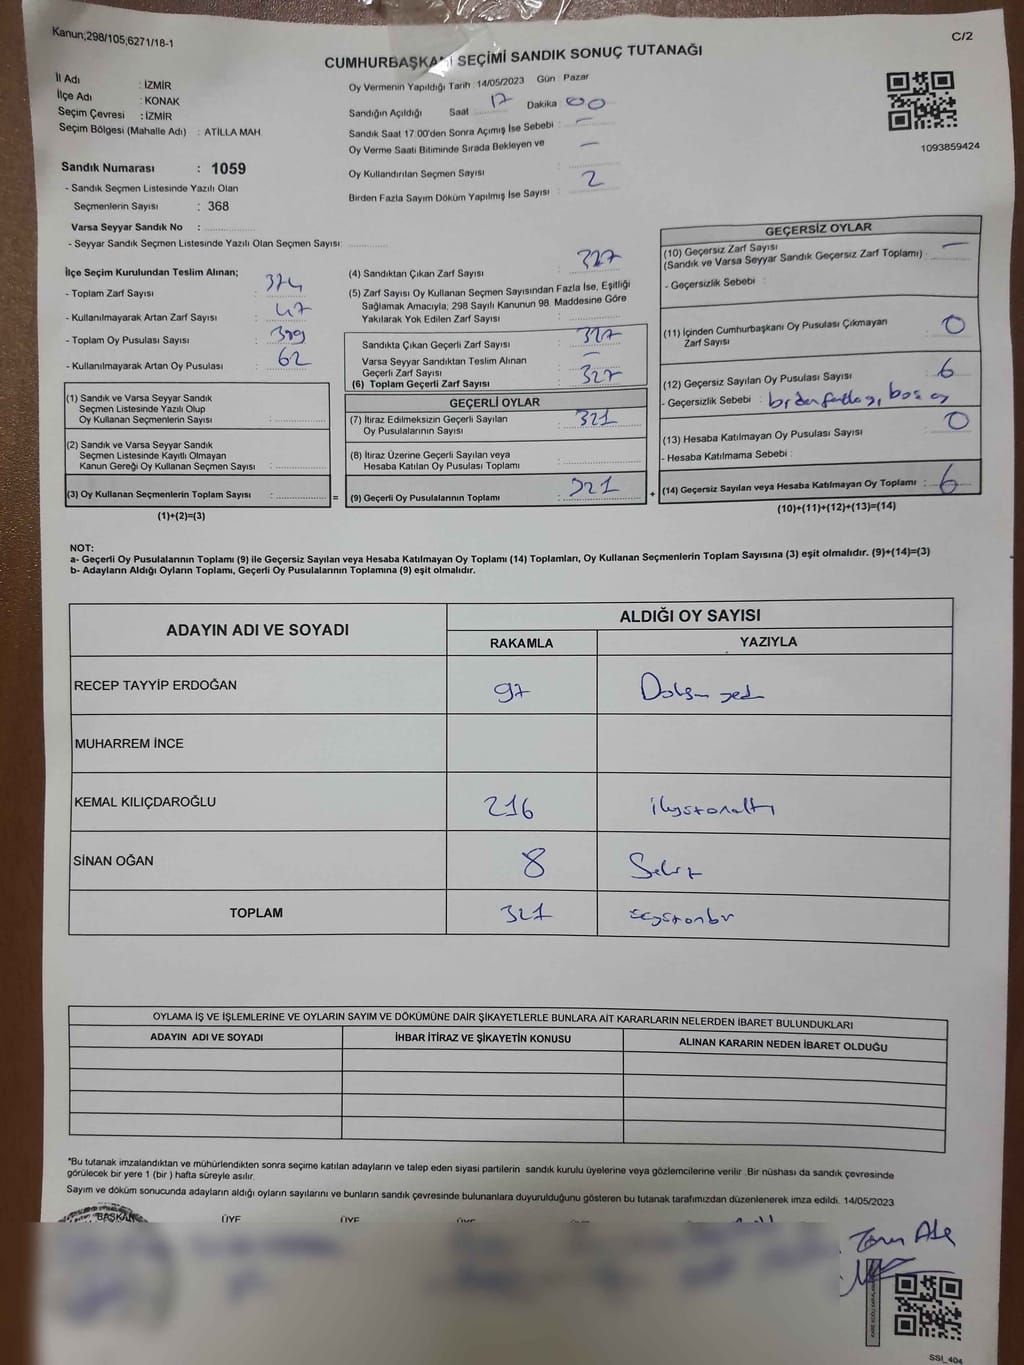 Kanun;298/105;6271/18-1
C/2
CUMHURBAŞKANI SEÇİMİ SANDIK SONUÇ TUTANAĞI
İl Adı : İZMİR
İlçe Adı : KONAK
Seçim Çevresi : İZMİR
Seçim Bölgesi (Mahalle Adı) : ATİLLA MAH
Oy Vermenin Yapıldığı Tarih : 14/05/2023 Gün : Pazar
Sandığın Açıldığı Saat 17 Dakika 00
Sandık Saat 17:00'den Sonra Açımış İse Sebebi : —
Oy Verme Saati Bitiminde Sırada Bekleyen ve —
Oy Kullandırılan Seçmen Sayısı
Birden Fazla Sayım Döküm Yapılmış İse Sayısı 2
1093859424
Sandık Numarası : 1059
- Sandık Seçmen Listesinde Yazılı Olan
Seçmenlerin Sayısı : 368
Varsa Seyyar Sandık No :
- Seyyar Sandık Seçmen Listesinde Yazılı Olan Seçmen Sayısı:
İlçe Seçim Kurulundan Teslim Alınan;
- Toplam Zarf Sayısı : 374
- Kullanılmayarak Artan Zarf Sayısı : 47
- Toplam Oy Pusulası Sayısı : 389
- Kullanılmayarak Artan Oy Pusulası : 62
(1) Sandık ve Varsa Seyyar Sandık
Seçmen Listesinde Yazılı Olup
Oy Kullanan Seçmenlerin Sayısı :
(2) Sandık ve Varsa Seyyar Sandık
Seçmen Listesinde Kayıtlı Olmayan
Kanun Gereği Oy Kullanan Seçmen Sayısı :
(3) Oy Kullanan Seçmenlerin Toplam Sayısı : =
(1)+(2)=(3)
(4) Sandıktan Çıkan Zarf Sayısı : 327
(5) Zarf Sayısı Oy Kullanan Seçmen Sayısından Fazla İse, Eşitliği
Sağlamak Amacıyla; 298 Sayılı Kanunun 98. Maddesine Göre
Yakılarak Yok Edilen Zarf Sayısı :
Sandıkta Çıkan Geçerli Zarf Sayısı : 327
Varsa Seyyar Sandıktan Teslim Alınan
Geçerli Zarf Sayısı : —
(6) Toplam Geçerli Zarf Sayısı : 327
GEÇERLİ OYLAR
(7) İtiraz Edilmeksizin Geçerli Sayılan
Oy Pusulalarının Sayısı : 321
(8) İtiraz Üzerine Geçerli Sayılan veya
Hesaba Katılan Oy Pusulası Toplamı :
(9) Geçerli Oy Pusulalarının Toplamı : 321 +
GEÇERSİZ OYLAR
(10) Geçersiz Zarf Sayısı
(Sandık ve Varsa Seyyar Sandık Geçersiz Zarf Toplamı) : —
- Geçersizlik Sebebi :
(11) İçinden Cumhurbaşkanı Oy Pusulası Çıkmayan
Zarf Sayısı : 0
(12) Geçersiz Sayılan Oy Pusulası Sayısı : 6
- Geçersizlik Sebebi : birden fazla oy, boş oy
(13) Hesaba Katılmayan Oy Pusulası Sayısı : 0
- Hesaba Katılmama Sebebi :
(14) Geçersiz Sayılan veya Hesaba Katılmayan Oy Toplamı : 6
(10)+(11)+(12)+(13)=(14)
NOT:
a- Geçerli Oy Pusulalarının Toplamı (9) ile Geçersiz Sayılan veya Hesaba Katılmayan Oy Toplamı (14) Toplamları, Oy Kullanan Seçmenlerin Toplam Sayısına (3) eşit olmalıdır. (9)+(14)=(3)
b- Adayların Aldığı Oyların Toplamı, Geçerli Oy Pusulalarının Toplamına (9) eşit olmalıdır.
ADAYIN ADI VE SOYADI ALDIĞI OY SAYISI
RAKAMLA YAZIYLA
RECEP TAYYİP ERDOĞAN 97 Doksan yedi
MUHARREM İNCE
KEMAL KILIÇDAROĞLU 216 ikiyüzonaltı
SİNAN OĞAN 8 Sekiz
TOPLAM 321
OYLAMA İŞ VE İŞLEMLERİNE VE OYLARIN SAYIM VE DÖKÜMÜNE DAİR ŞİKAYETLERLE BUNLARA AİT KARARLARIN NELERDEN İBARET BULUNDUKLARI
ADAYIN ADI VE SOYADI İHBAR İTİRAZ VE ŞİKAYETİN KONUSU ALINAN KARARIN NEDEN İBARET OLDUĞU
*Bu tutanak imzalandıktan ve mühürlendikten sonra seçime katılan adayların ve talep eden siyasi partilerin sandık kurulu üyelerine veya gözlemcilerine verilir. Bir nüshası da sandık çevresinde
görülecek bir yere 1 (bir ) hafta süreyle asılır.
Sayım ve döküm sonucunda adayların aldığı oyların sayılarını ve bunların sandık çevresinde bulunanlara duyurulduğunu gösteren bu tutanak tarafımızdan düzenlenerek imza edildi. 14/05/2023
BAŞKAN ÜYE ÜYE ÜYE
SSI_404